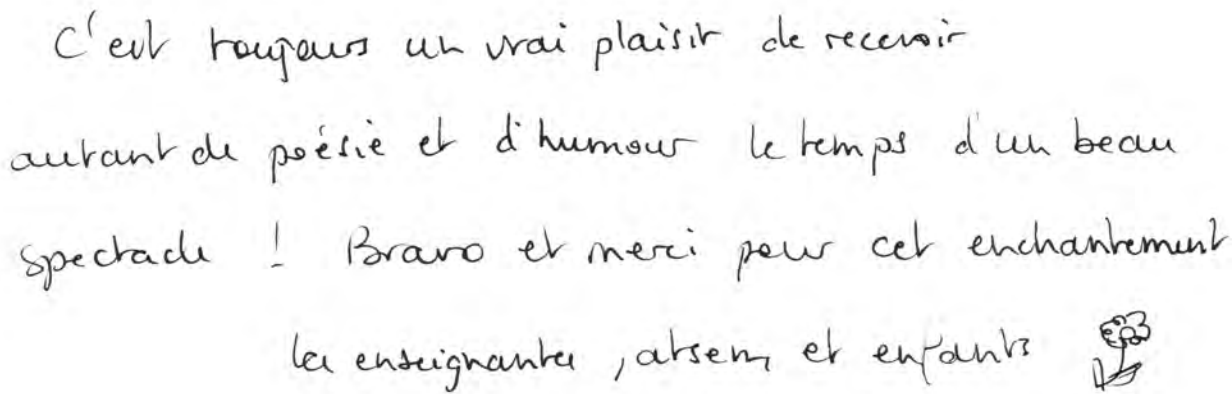 C'est toujours un vrai plaisir de recevoir
autant de poésie et d'humour le temps d'un beau
spectacle ! Bravo et merci pour cet enchantement
les enseignantes, atsem, et enfants